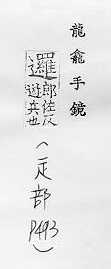 龍龕手鏡
邏郎佐反遊兵也
(辵部 P493)